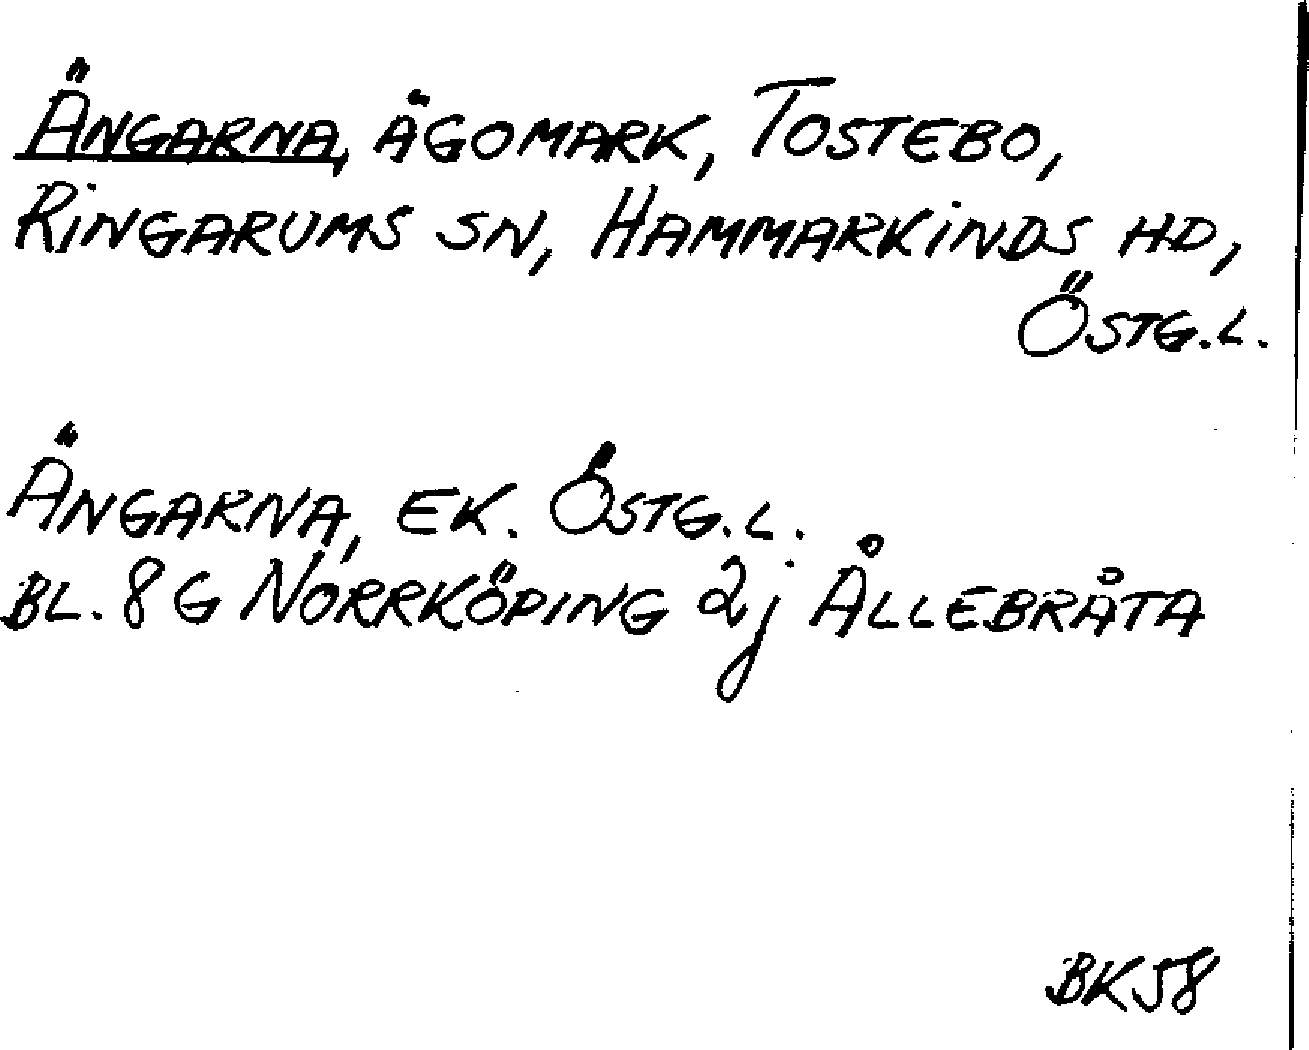 ÄNGARNA, ÄGOMARK, TOSTEBO,
RINGARUMS SN, HAMMARKINDS HD,
ÖSTG.L.
ÄNGARNA, EK. ÖSTG.L.
BL. 8 G NORRKÖPING 2j ÅLLEBRÅTA
BK58